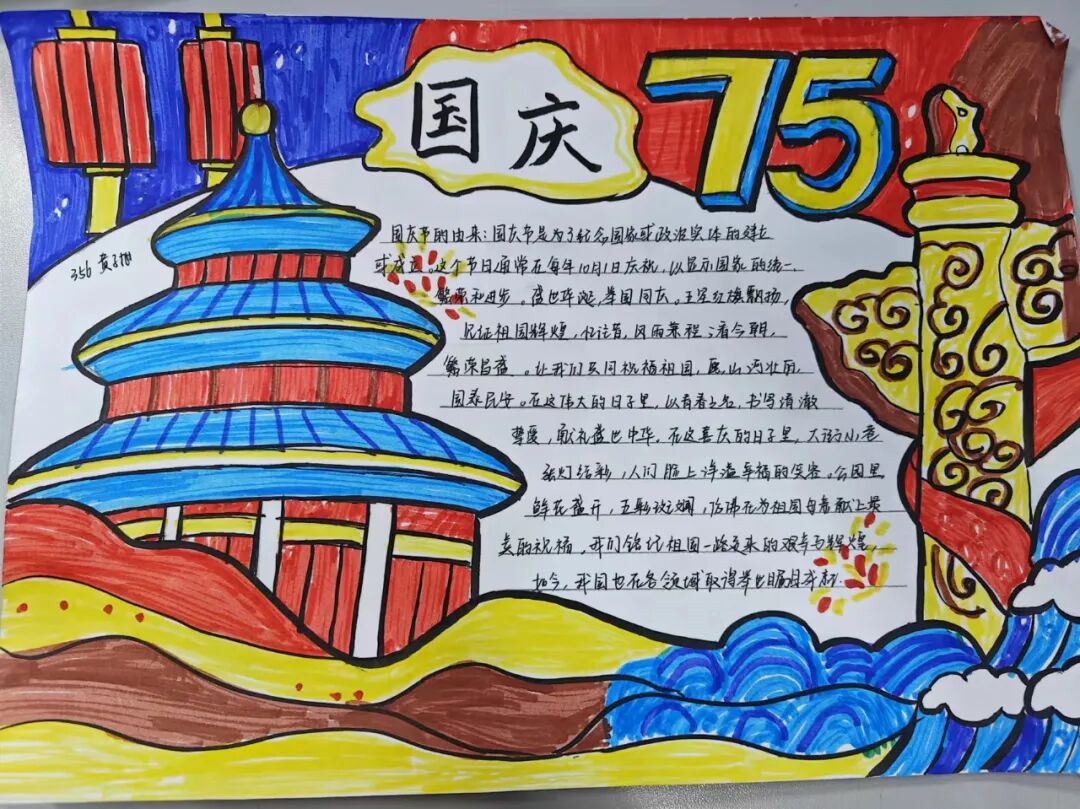 国庆
75
356 黄子
国庆节的由来:国庆节是为了纪念国家或政治实体的建立
或成立。这个节日通常在每年10月1日庆祝,以显示国家的统一、
繁荣和进步。盛世华诞,举国同庆。五星红旗飘扬,
见证祖国辉煌,忆往昔,风雨兼程;看今朝,
繁荣昌盛。让我们共同祝福祖国,愿山河壮丽,
国泰民安。在这伟大的日子里,以青春之名,书写清澈
挚爱,献礼盛世中华。在这喜庆的日子里,大街小巷
张灯结彩,人们脸上洋溢幸福的笑容。公园里
鲜花盛开,五彩斑斓,仿佛在为祖国母亲献上最
美的祝福,我们铭记祖国一路走来的艰辛与辉煌,
如今,我国也在各领域取得举世瞩目成就.